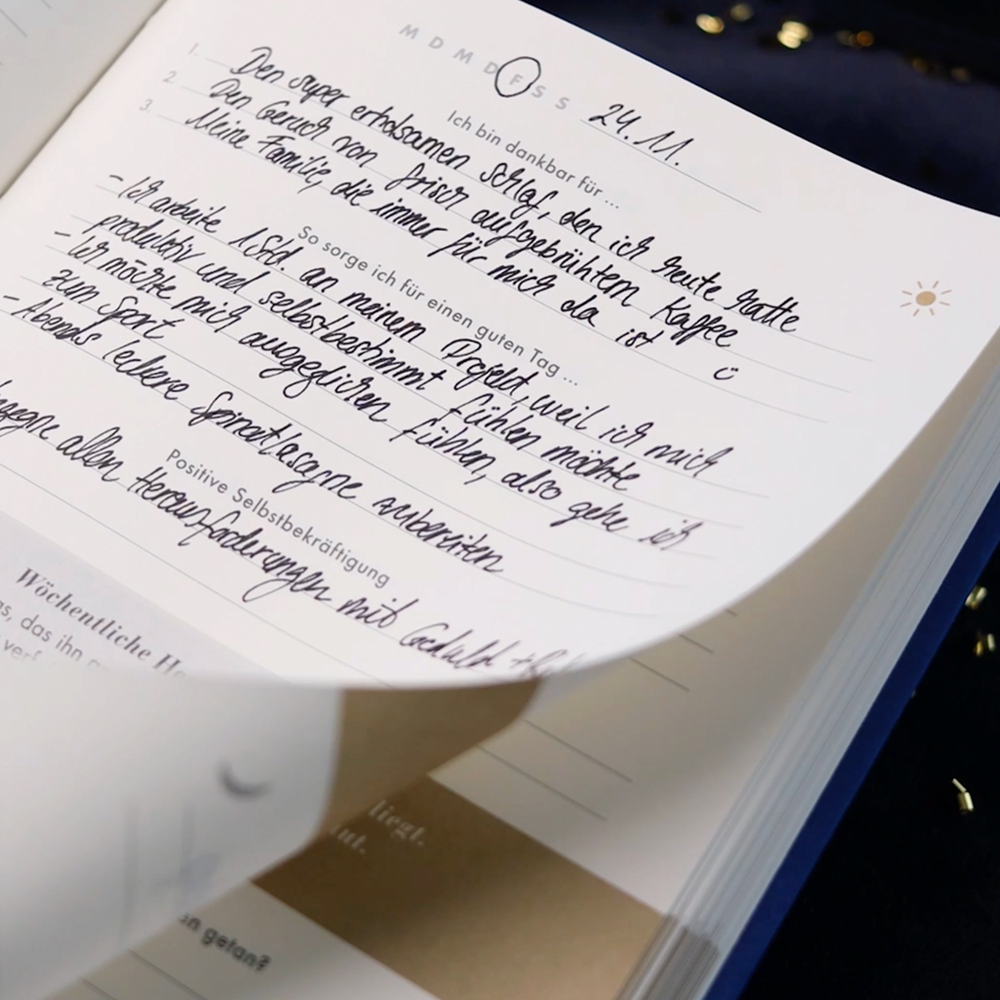 M D M D F S S 24.11.
Ich bin dankbar für ...
1. Den super erholsamen Schlaf, den ich heute hatte
2. Den Geruch von frisch aufgebrühtem Kaffee
3. Meine Familie, die immer für mich da ist
So sorge ich für einen guten Tag ...
- Ich arbeite 1 Std. an meinem Projekt, weil ich mich
produktiv und selbstbestimmt fühlen möchte
- Ich möchte mich ausgeglichen fühlen, also gehe ich
zum Sport
- Abends leckere Spinatlasagne zubereiten
Positive Selbstbekräftigung
allen Herausforderungen mit Geduld +
Wöchentliche
das ihn
liegt.
getan?